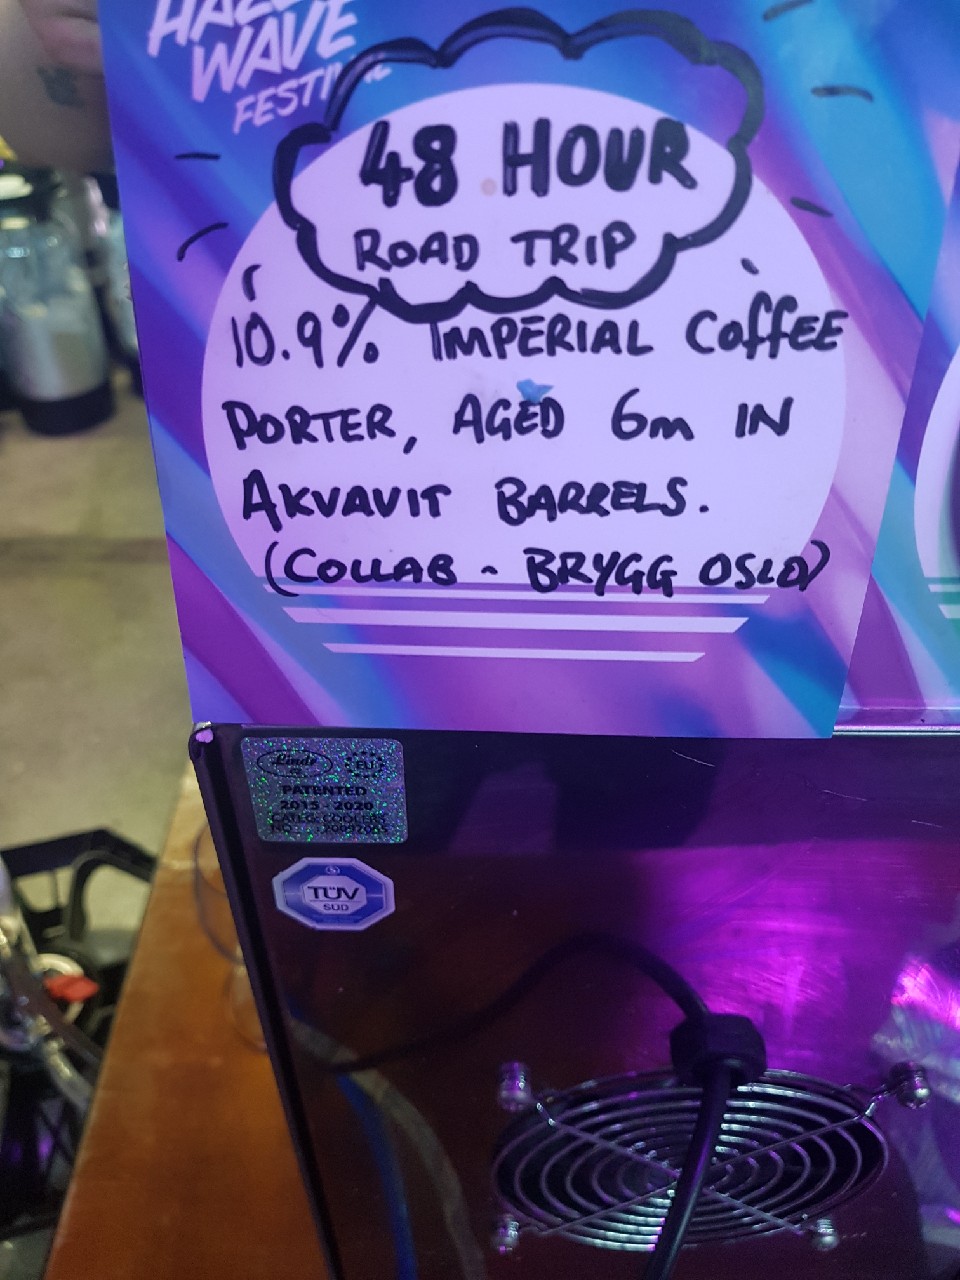 WAVE
FESTIVAL
48 HOUR
ROAD TRIP
10.9% IMPERIAL COFFEE
PORTER, AGED 6m IN
AKVAVIT BARRELS.
(COLLAB - BRYGG OSLO)
Lindr EU
PATENTED
2015 - 2020
CATEG. COOLERS
NO.
TÜV
SÜD